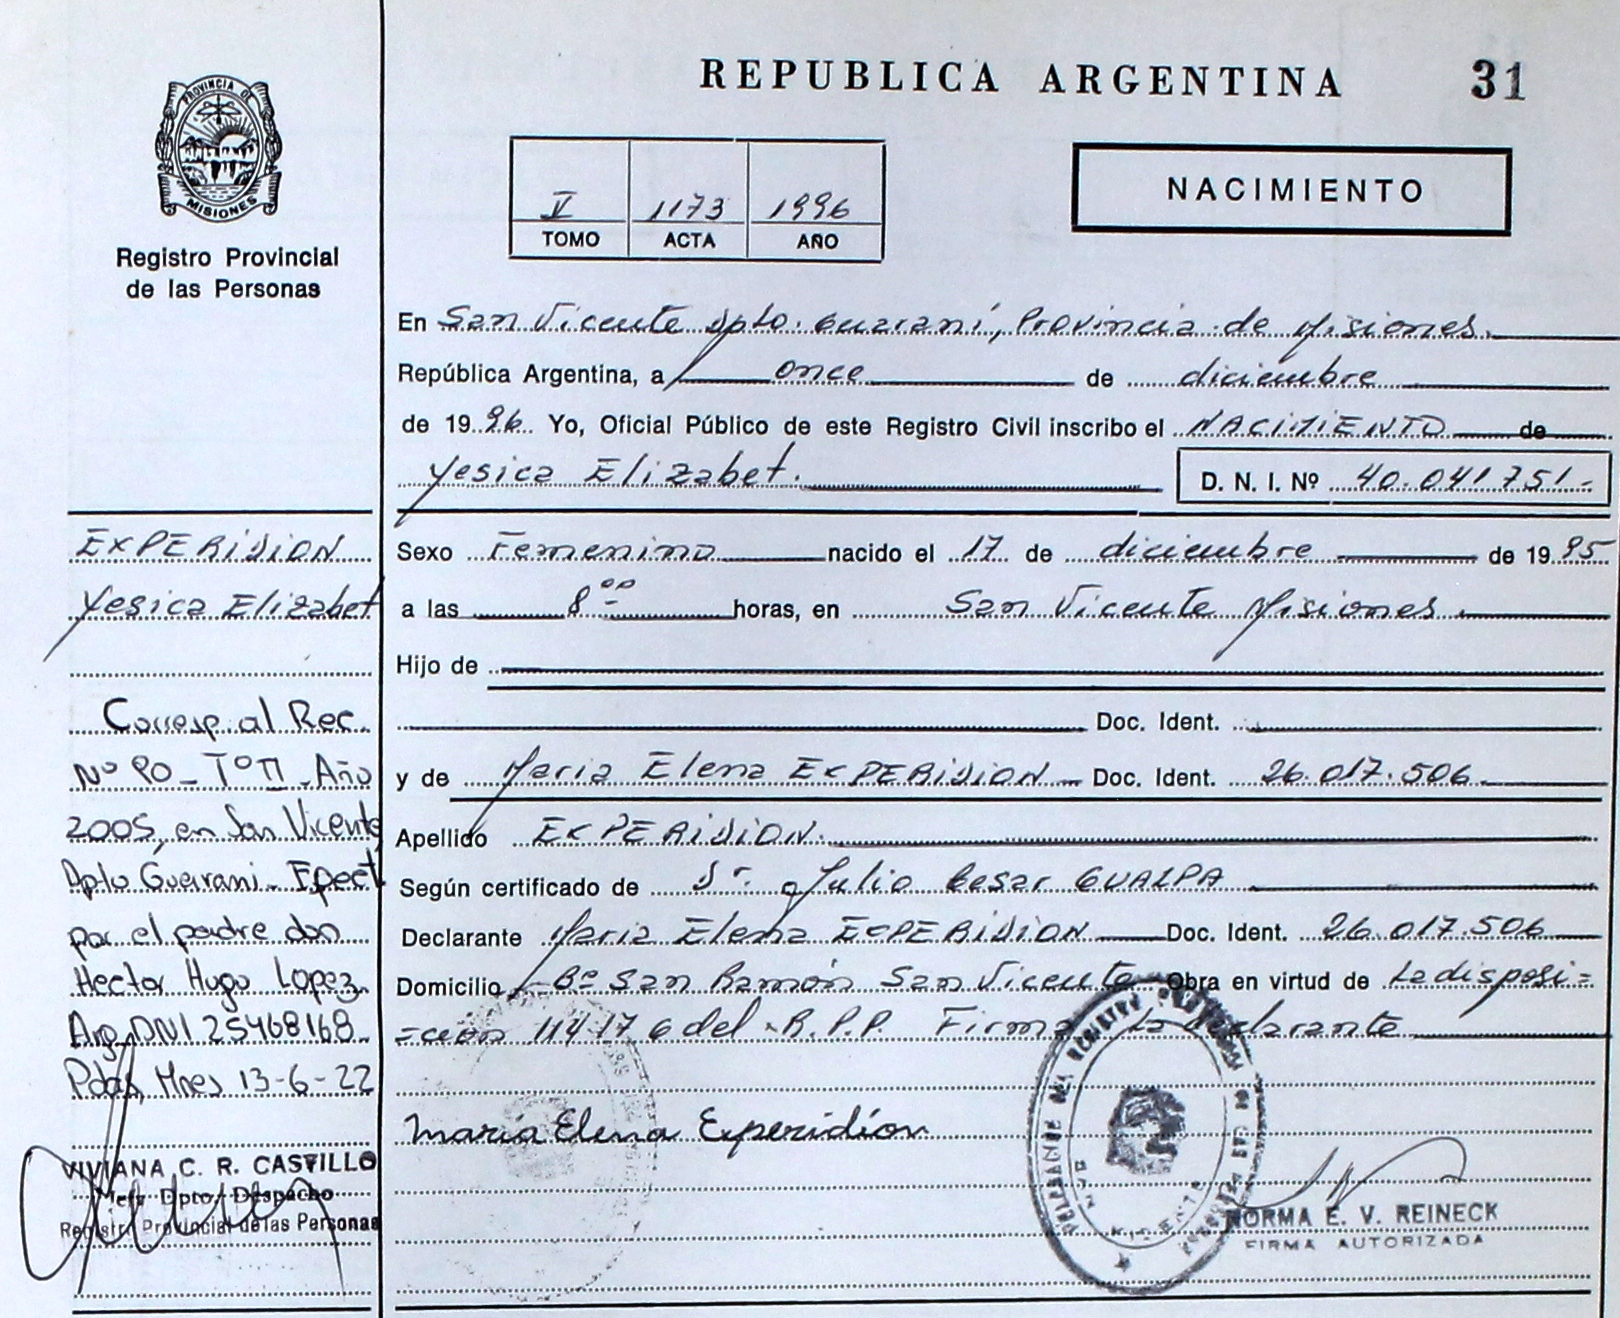 REPUBLICA ARGENTINA 31
PROVINCIA DE
MISIONES
Registro Provincial
de las Personas
V 1173 1996
TOMO ACTA AÑO
NACIMIENTO
En San Vicente Dpto. Guaraní, Provincia de Misiones.
República Argentina, a once de diciembre
de 1996 Yo, Oficial Público de este Registro Civil inscribo el NACIMIENTO de
Yesica Elizabet. D. N. I. Nº 40.041.751.-
Sexo Femenino nacido el 17 de diciembre de 1995
a las 8 ºº horas, en San Vicente Misiones.
Hijo de
Doc. Ident.
y de Maria Elena EXPERIDION Doc. Ident. 26.017.506
Apellido EXPERIDION.
Según certificado de Dr. Julio Cesar GUALPA
Declarante Maria Elena EXPERIDION Doc. Ident. 26.017.506
Domicilio Bº San Ramón San Vicente Obra en virtud de La disposi=
=ción del R.P.P. Firma La declarante
Maria Elena Experidión
NORMA E. V. REINECK
FIRMA AUTORIZADA
EXPERIDION
Yesica Elizabet
Corresp. al Rec.
Nº 90 - Tº II - Año
2005, en San Vicente
Dpto Guarani - Efect
por el padre don
Hector Hugo Lopez
Arg. DNI 25468168
Pdas, Mnes 13-6-22
VIVIANA C. R. CASTILLO
Jefe Dpto. Despacho
Registro Provincial de las Personas